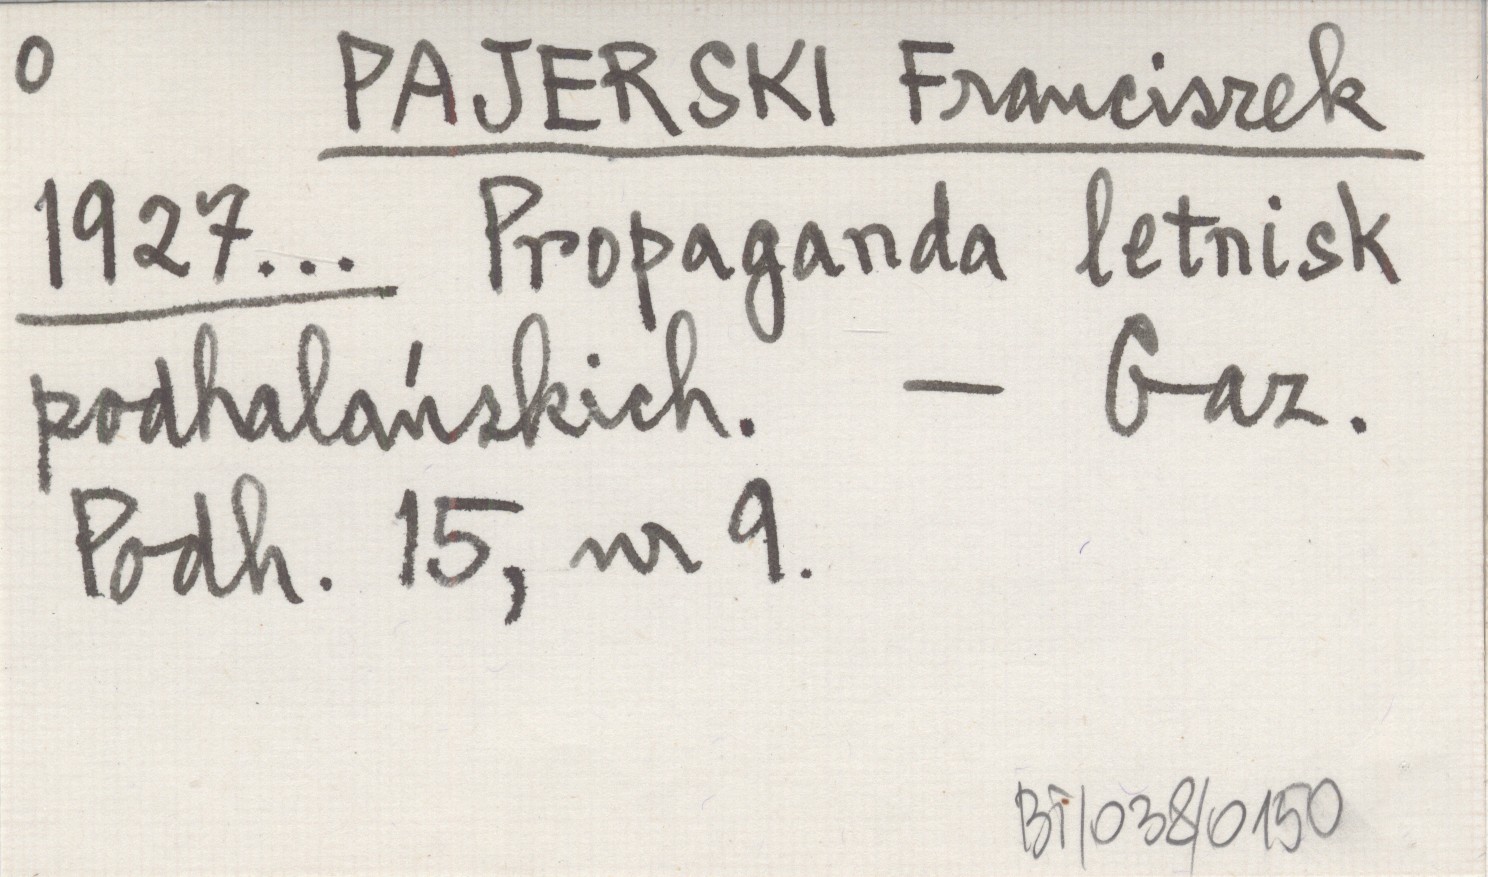 0 PAJERSKI Franciszek
1927... Propaganda letnisk
podhalańskich. — Gaz.
Podh. 15, nr 9.
BT/038/0150